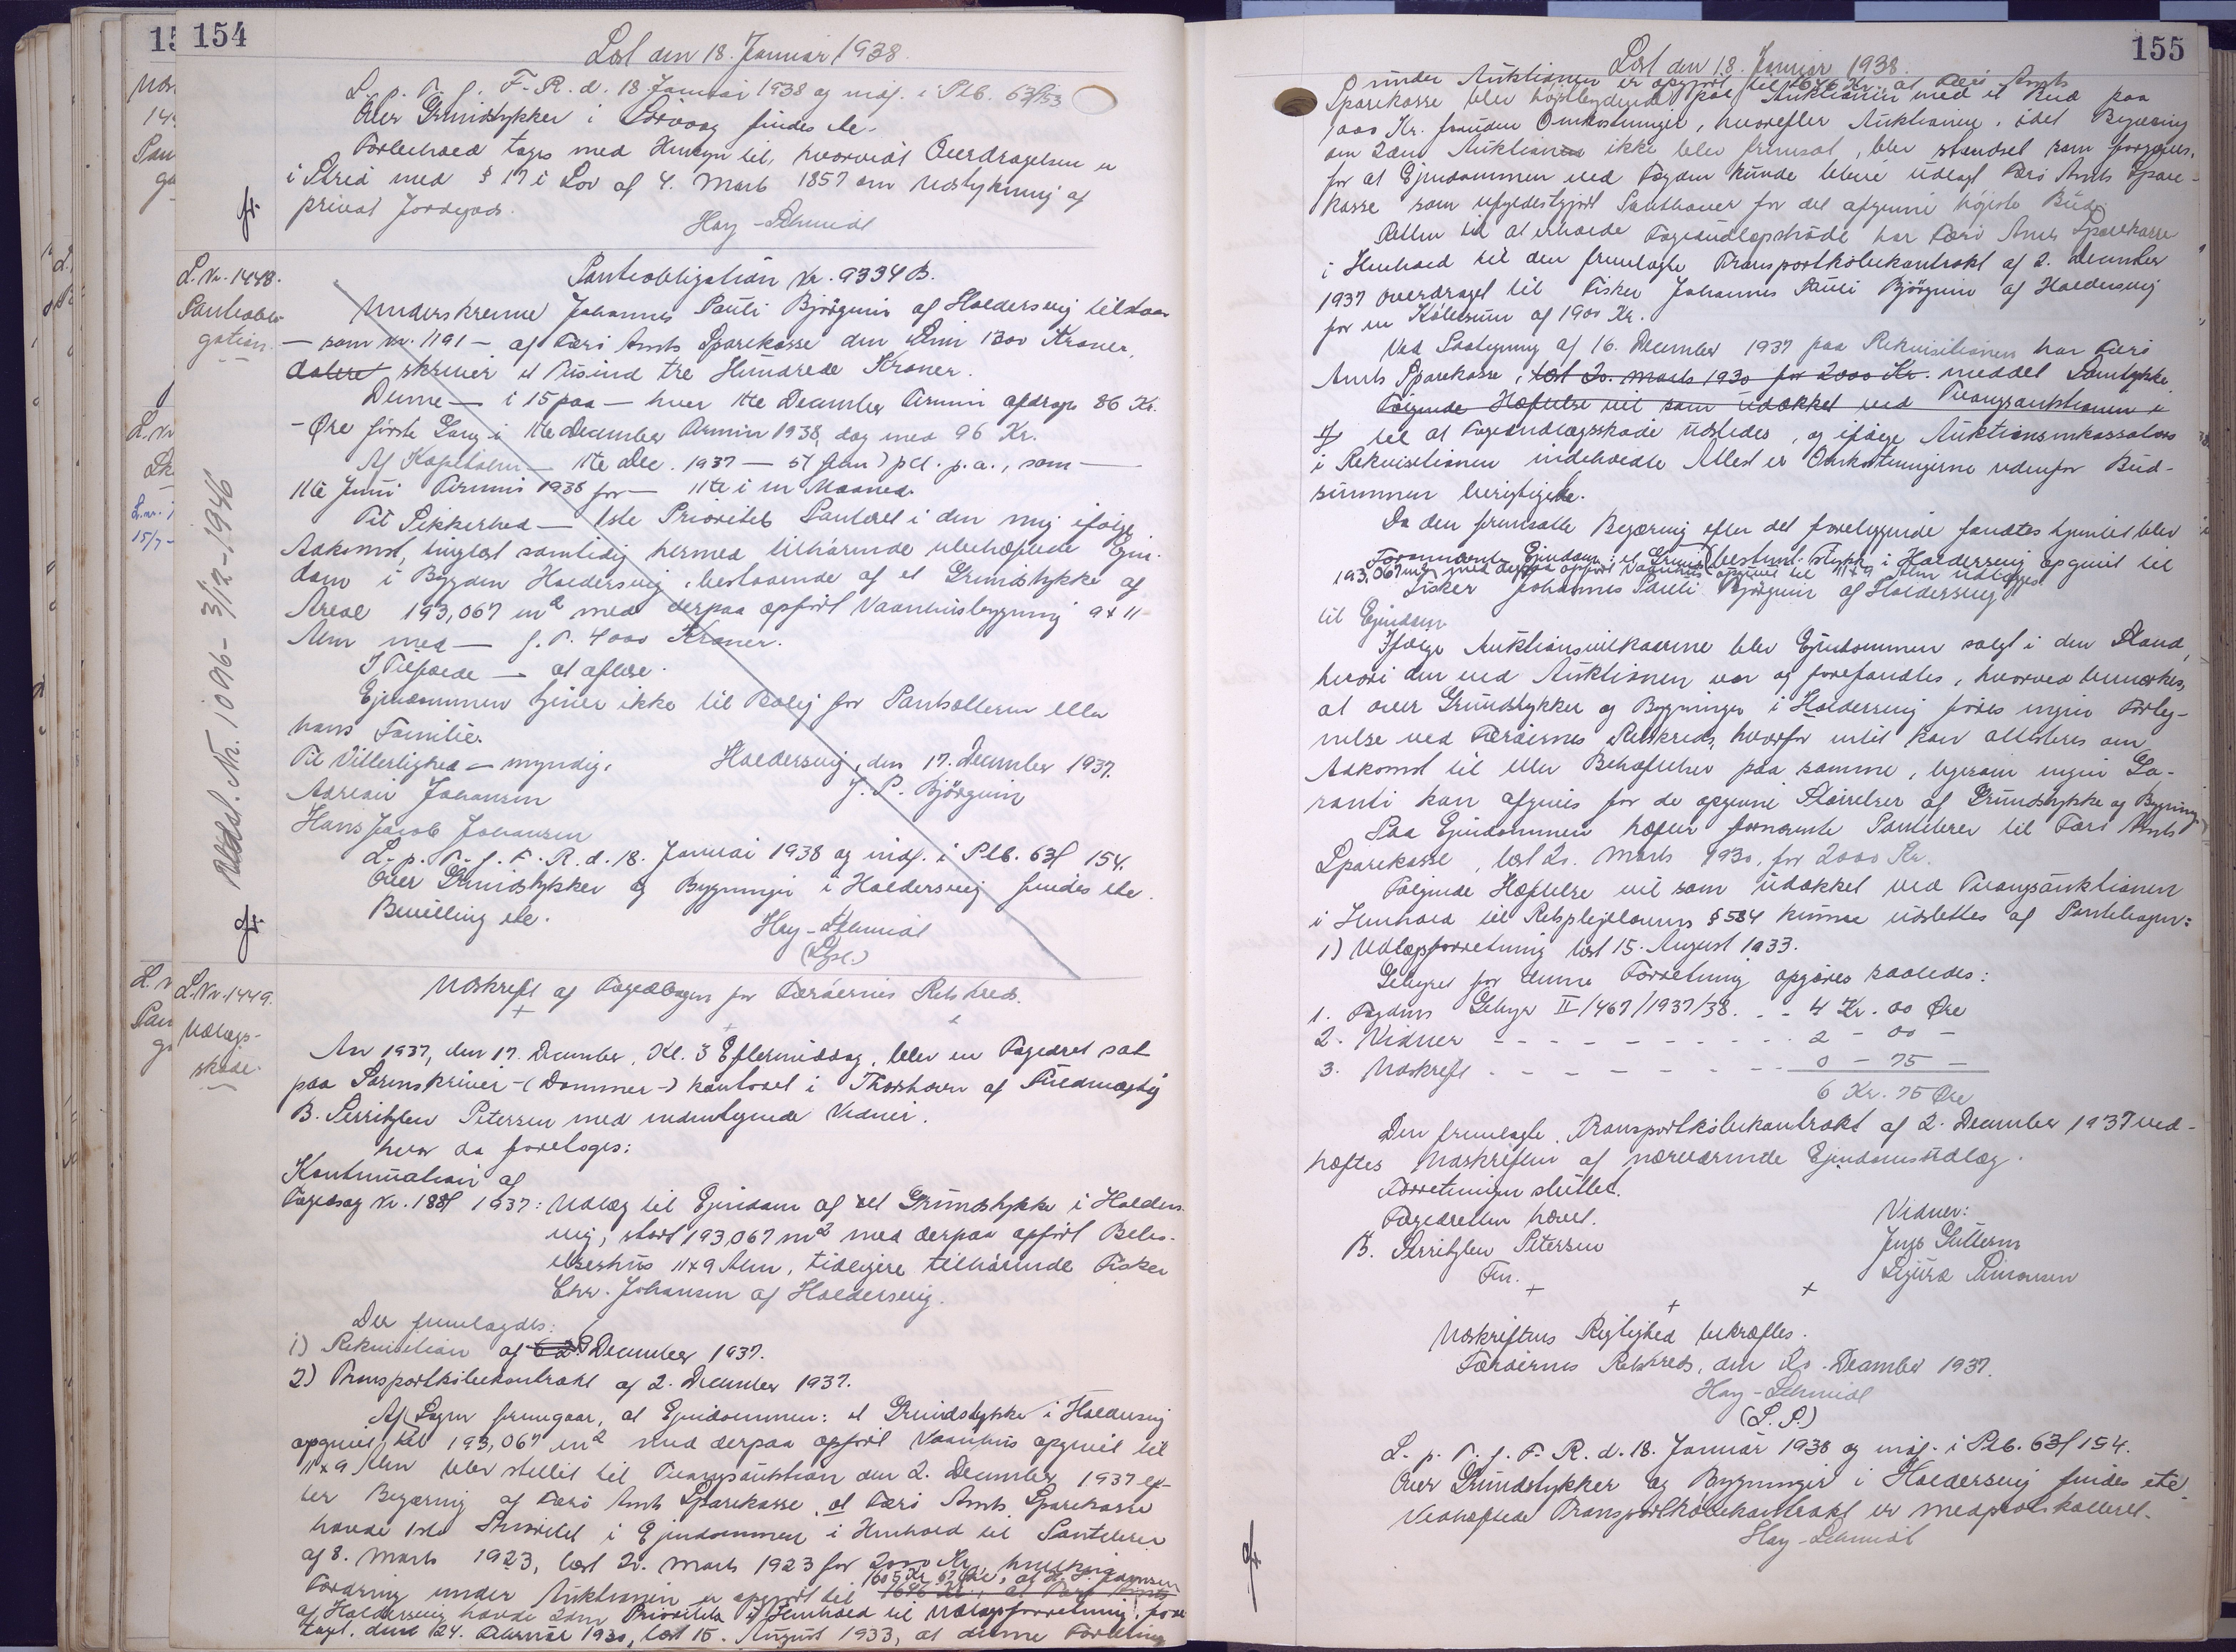 154
Læst den 18. Januar 1938.
L. p. T. f. F. R. d. 18 Januar 1938 og indf. i Ptb. 63f 153
Over Grundstykker i findes etc.
Forbehold tages med Hensyn til, hvorvidt Overdragelsen er
i Strid med § 17 i Lov af 4. Marts 1857 om Udstykning af
privat Jordegods.
Hay-Schmidt
L. Nr. 1448.
Panteobli-
gation.
Panteobligation Nr. 9334 B.
Underskrevne Johannes Pauli Bjørguin af Haldersvig tilstaar
— som Nr. 1191 — af Færø Amts Sparekasse den Sum 1300 Kroner,
skriver et Tusind tre Hundrede Kroner.
Denne — i 15 paa — hver 11te December Termin afdrages 86 Kr.
- Øre første Gang i 11te December Termin 1938, dog med 96 Kr.
Af Kapitalen — 11te Dec. 1937 — 5½ (fem) pct. p.a., som —
11te Juni Termin 1938 for — 11te i en Maaned.
Til Sikkerhed — 1ste Prioritets Panteret i den mig ifølge
Adkomst, tinglæst samtidig hermed tilhørende ubehæftede Ejen-
dom i Bygden Haldersvig, bestaaende af et Grundstykke af
Areal 193,067 m² med derpaa opført Vaaningsbygning 9 x 11
Alen med — f. T. 4000 Kroner.
I Tilfælde — at aflæse.
Ejendommen tjener ikke til Bolig for Pantsætteren eller
hans Familie.
Til Vitterlighed — myndig. Haldersvig, den 17. December 1937.
Adrian Johansen J. P. Bjørguin
Hans Jacob Johansen
L. p. T. f. F. R. d. 18. Januar 1938 og indf. i Ptb. 63f 154.
Over Grundstykker og Bygninger i Haldersvig findes etc.
Bevilling etc.
Hay-Schmidt
Udsl. Nr. 1096 - 3/12-1946
L. Nr. 1449.
Udlægs-
skøde.
Udskrift af Fogedbogen for Færøernes Retskreds.
Aar 1937, den 17. December, Kl. 3 Eftermiddag, blev en Fogedret sat
paa Sorenskriver-(Dommer-)kontoret i Thorshavn af Fuldmægtig
B. Serritzlew Petersen med medundertegnede Vidner.
hvor da foretoges:
Kontinuation af
Fogedsag Nr. 188f 1937: Udlæg til Ejendom af et Grundstykke i Halders-
vig, stort 193,067 m² med derpaa opført Bebo-
elseshus 11x9 Alen, tidligere tilhørende Fisker
Chr. Johansen af Haldersvig.
Der fremlagdes:
1) Rekvisition af December 1937.
2) Transportkøbekontrakt af 2. December 1937.
Af Sagen fremgaar, at Ejendommen: et Grundstykke i Haldersvig
opgivet til 193,067 m² med derpaa opført Vaanhus opgivet til
11x9 Alen blev stillet til Tvangsauktion den 2. December 1937 ef-
ter Begæring af Færø Amts Sparekasse, at Færø Amts Sparekasse
havde 1ste Prioritet i Ejendommen i Henhold til Pantebrev
af 8. Marts 1923, læst 20. Marts 1923 for 2000 Kr., hvilken
Fordring under Auktionen er opgjort til 1605 Kr 67 Øre, at
af Haldersvig havde 2den Prioritet i Henhold til Udlægsforretning, fore-
taget den 24. Februar 1930, læst 15. August 1933, at denne Fordring
155
Læst den 18. Januar 1938.
under Auktionen er opgjort til 1646 Kr., at Færø Amts
Sparekasse blev højstbydende paa Auktionen med et Bud paa
1000 Kr. foruden Omkostninger, hvorefter Auktionen, idet Begæring
om 2den Auktion ikke blev fremsat, blev standset som forgæves,
for at Ejendommen ved Fogden kunde blive udlagt Færø Amts Spare-
kasse som ufyldestgjort Panthaver for det afgivne højeste Bud.
Retten til at erholde Fogedudlægsskøde har Færø Amts Sparekasse
i Henhold til den fremlagte Transportkøbekontrakt af 2. December
1937 overdraget til Fisker Johannes Pauli Bjørguin af Haldersvig
for en Købesum af 1900 Kr.
Ved Paategning af 16. December 1937 paa Rekvisitionen har Færø
Amts Sparekasse, læst 20. Marts 1930 for 2000 Kr. meddelt Samtykke
Følgende Hæftelse vil som udækket ved Tvangsauktionen i
til at Fogedudlægsskøde udstedes, og ifølge Auktionsinkassators
i Rekvisitionen indeholdte Attest er Omkostningerne udenfor Bud-
summen berigtigede.
Da den fremsatte Begæring efter det foreliggende fandtes hjemlet blev
Fornævnte Ejendom: et Grundstykke i Haldersvig opgivet til
193,067 m² med derpaa opført Vaanhus opgivet til 11x9 Alen udlagt
Fisker Johannes Pauli Bjørguin af Haldersvig
til Ejendom
Ifølge Auktionsvilkaarene blev Ejendommen solgt i den Stand,
hvori den ved Auktionen var og forefandtes, hvorved bemærkes,
at over Grundstykker og Bygninger i Haldersvig føres ingen Forteg-
nelse ved Færøernes Retskreds, hvorfor intet kan attesteres om
Adkomst til eller Behæftelser paa samme, ligesom ingen Ga-
ranti kan afgives for de opgivne Størrelser af Grundstykke og Bygning.
Paa Ejendommen hæfter fornævnte Pantebrev til Færø Amts
Sparekasse, læst 20. Marts 1930, for 2000 Kr.
Følgende Hæftelse vil som udækket ved Tvangsauktionen
i Henhold til Retsplejelovens § 584 kunne udslettes af Pantebogen:
1) Udlægsforretning læst 15. August 1933.
Gebyret for denne Forretning opgøres saaledes:
1. Fogdens Gebyr II/467/1937/38. - - 4 Kr. 00 Øre
2. Vidner - - - - - - - - - - 2 - 00 -
3. Udskrift - - - - - - - - - 0 - 75 -
6 Kr. 75 Øre
Den fremlagte Transportkøbekontrakt af 2. December 1937 ved-
hæftes Udskriften af nærværende Ejendomsudlæg.
Forretningen sluttet.
Fogedretten hævet. Vidner:
B. Serritzlew Petersen
Fm. Sigurd Simonsen
Udskriftens Rigtighed bekræftes.
Færøernes Retskreds, den 20. December 1937.
Hay-Schmidt
(L. S.)
L. p. T. f. F. R. d. 18. Januar 1938 og indf. i Ptb. 63f 154.
Over Grundstykker og Bygninger i Haldersvig findes etc.
Vedhæftede Transportkøbekontrakt er medprotokolleret.
Hay-Schmidt